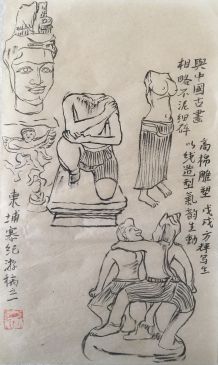 與中國古畫
粗略不泥细碎
高棉雕塑 戊戌方輝写生
以线造型氣韵生動
柬埔寨纪游稿之二